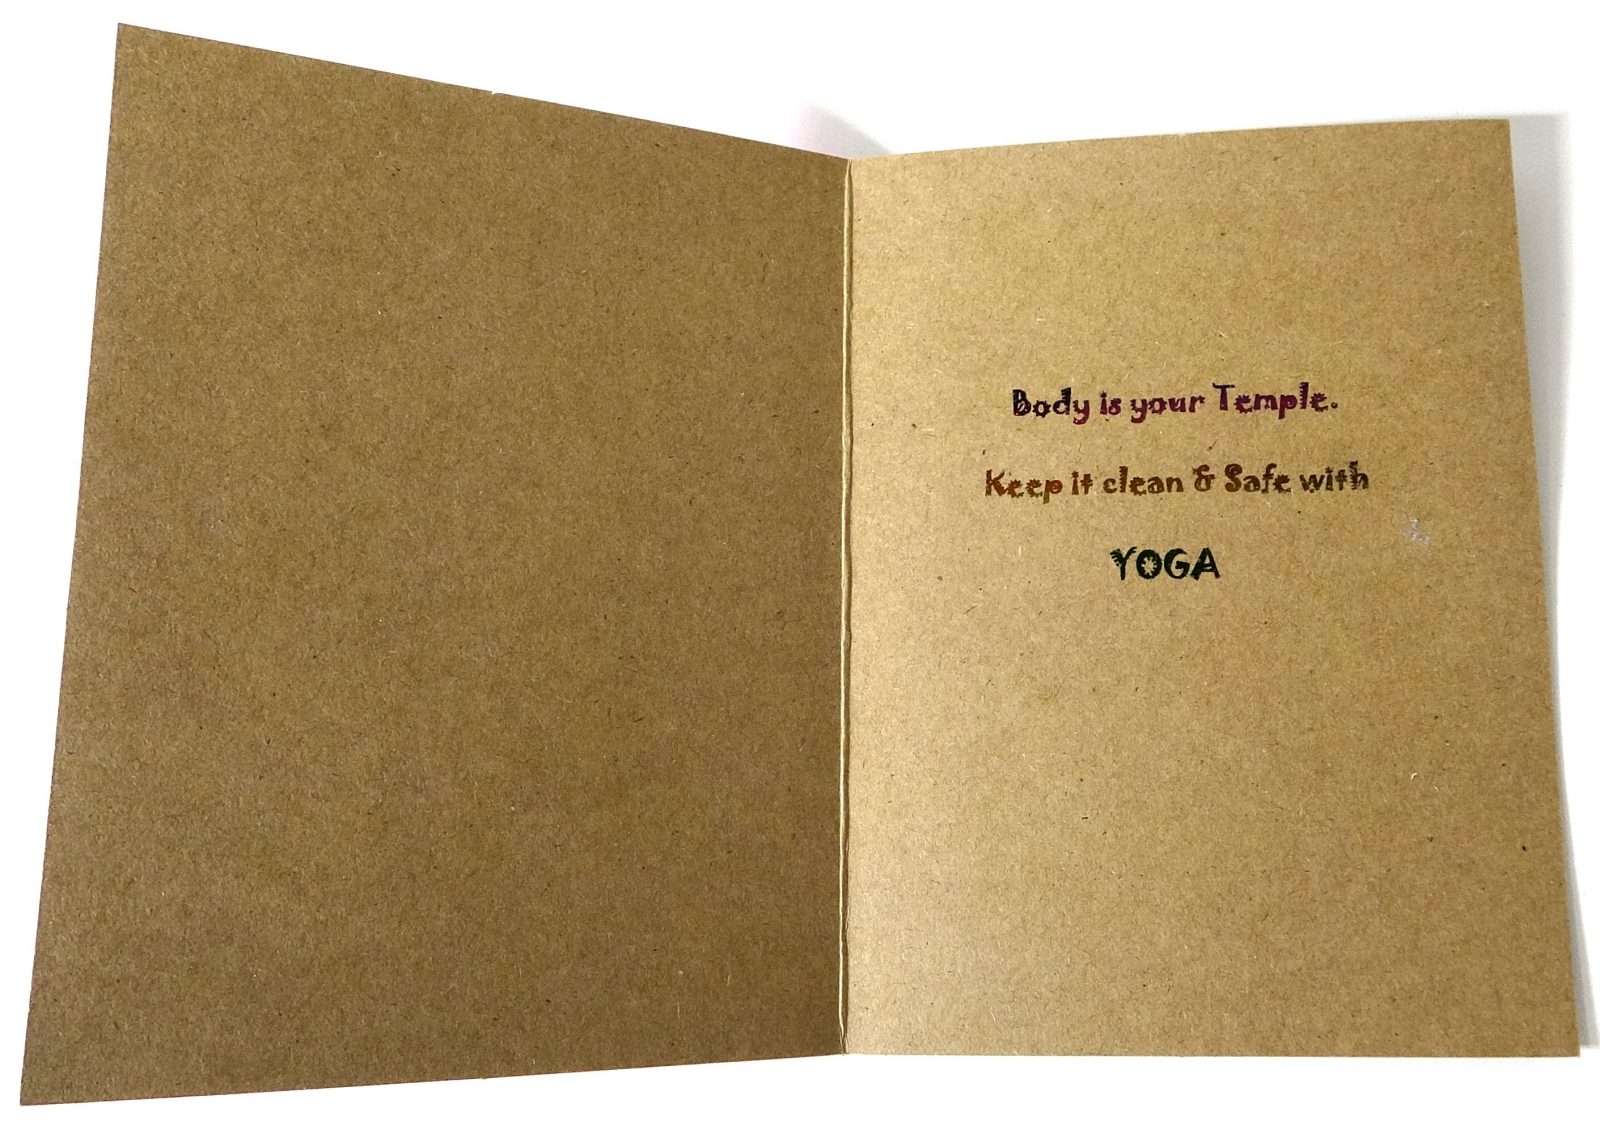 Body is your Temple.
Keep it clean & Safe with
YOGA